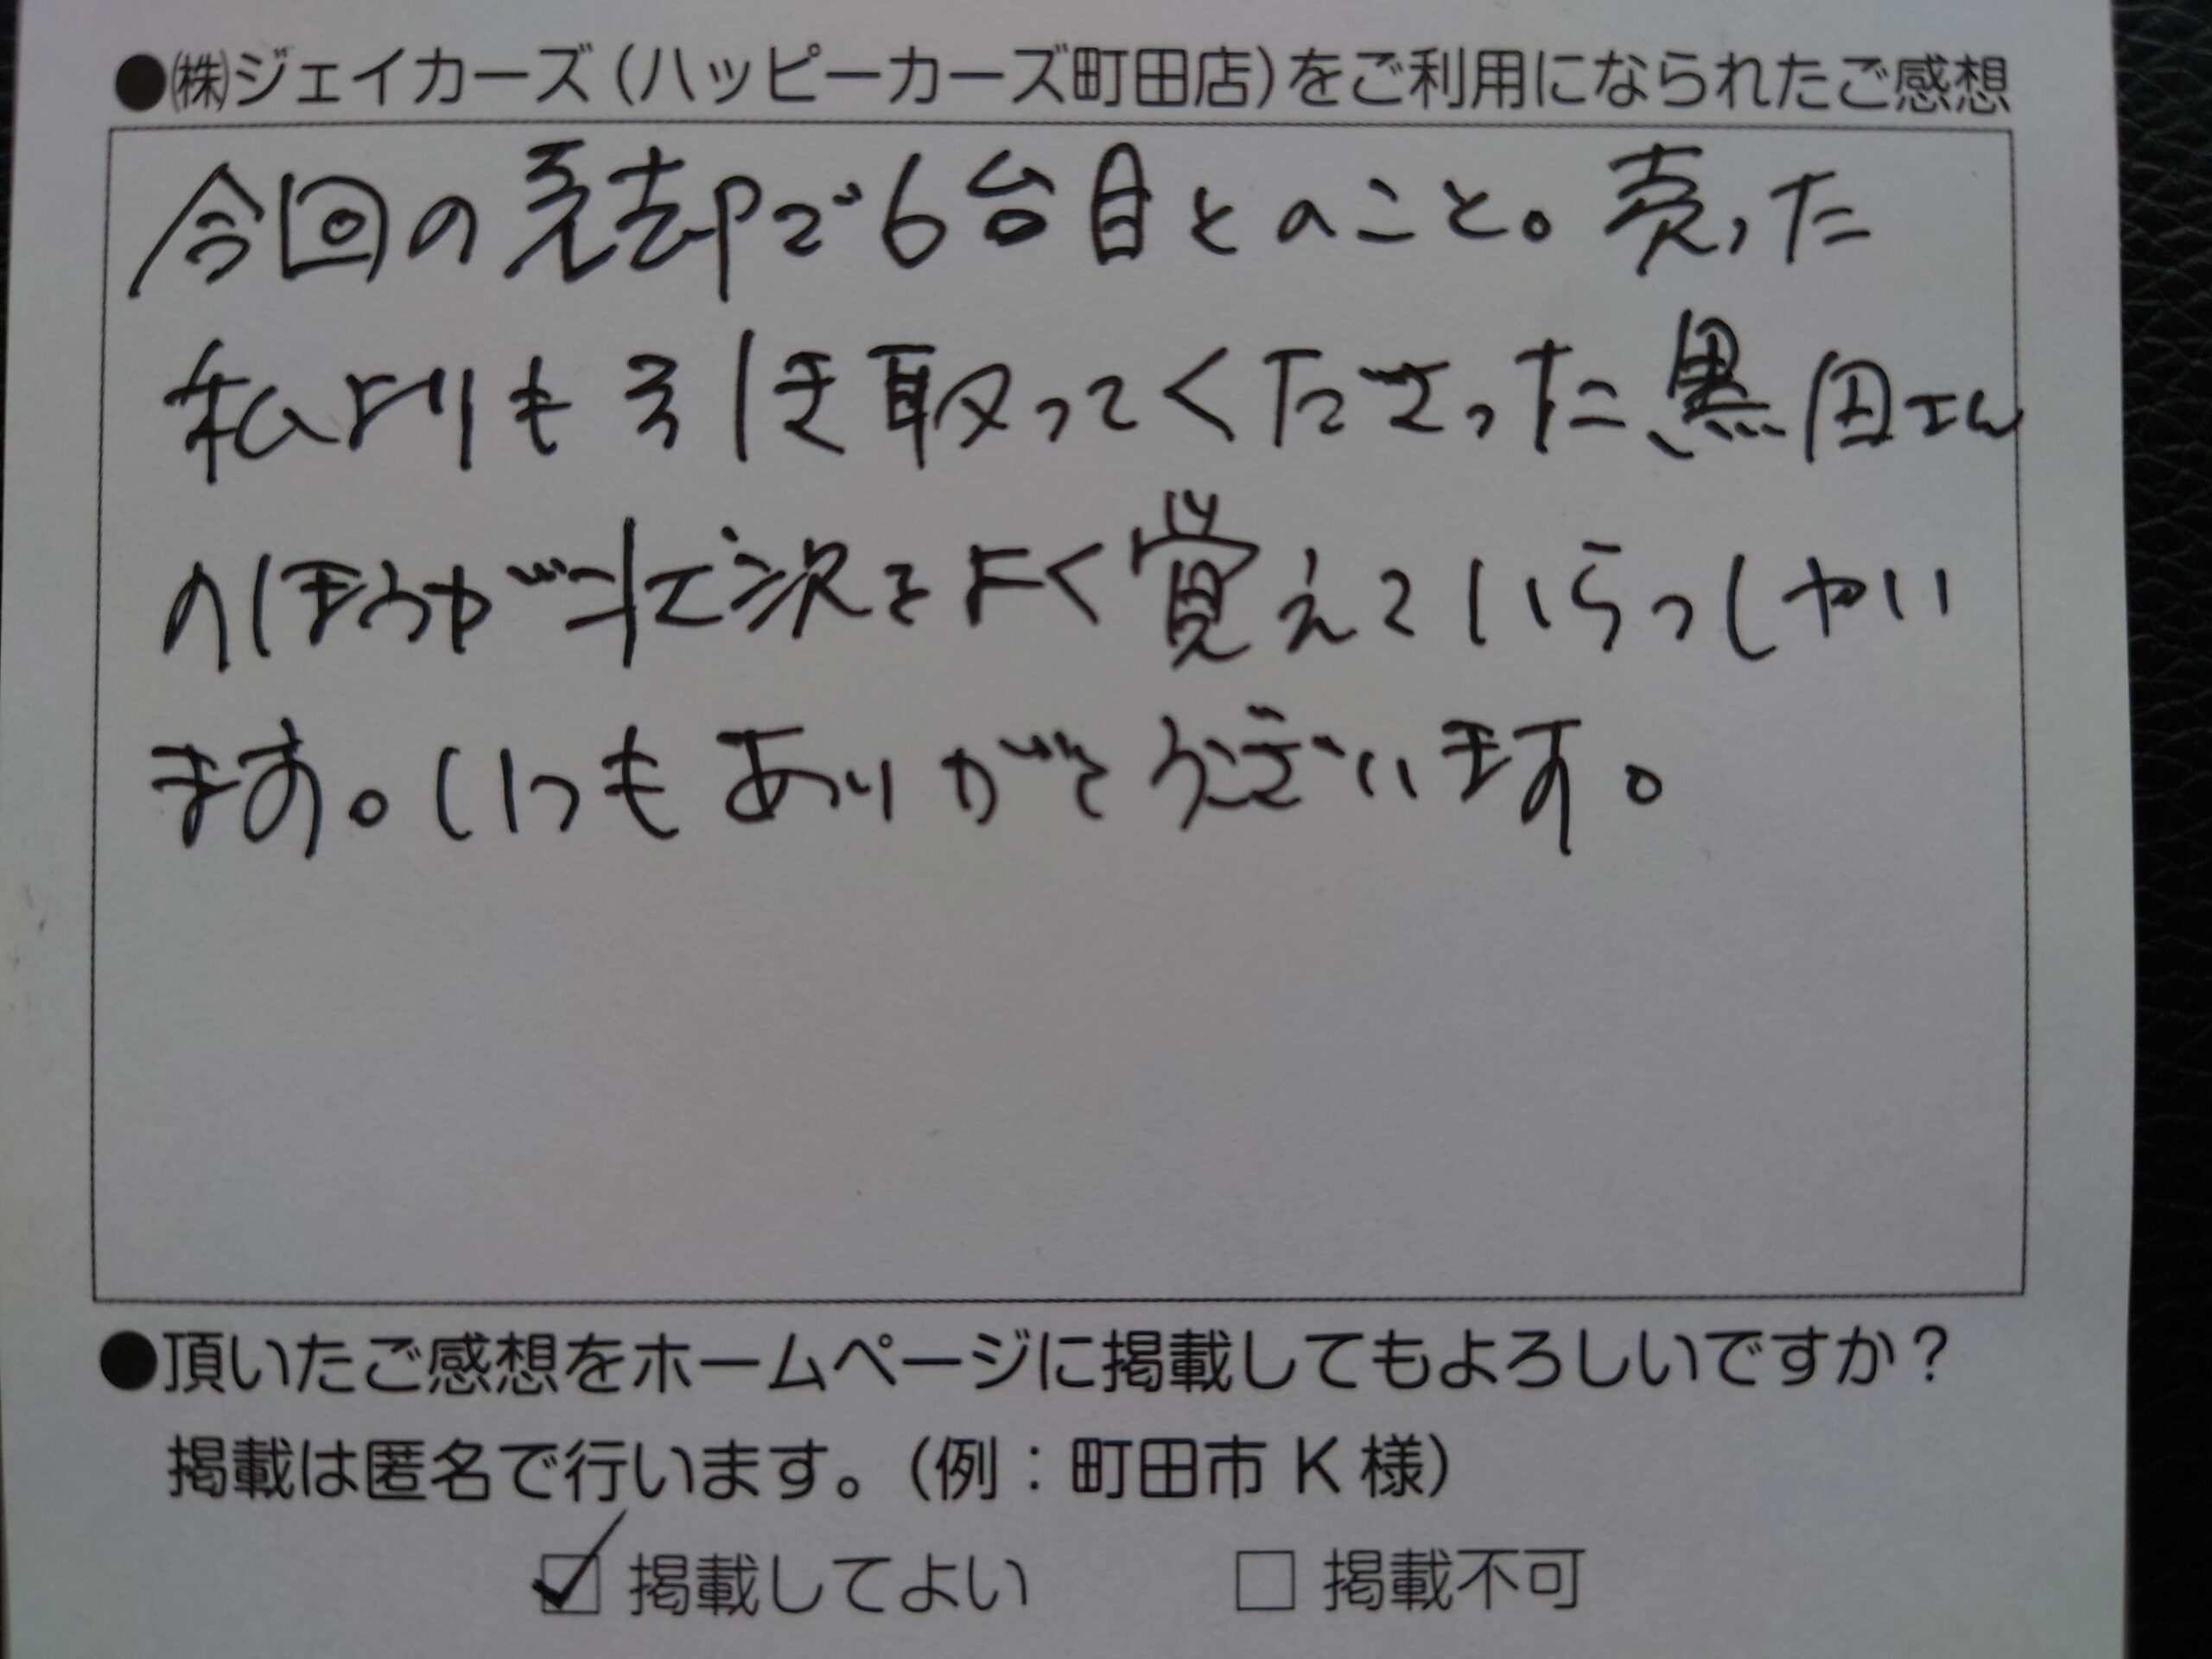 ●㈱ジェイカーズ(ハッピーカーズ町田店)をご利用になられたご感想
今回の売却で6台目とのこと。売った
私よりも引き取ってくださった黒田さん
のほうが状況をよく覚えていらっしゃい
ます。いつもありがとうございます。
●頂いたご感想をホームページに掲載してもよろしいですか？
掲載は匿名で行います。(例：町田市 K 様)
☑ 掲載してよい □ 掲載不可